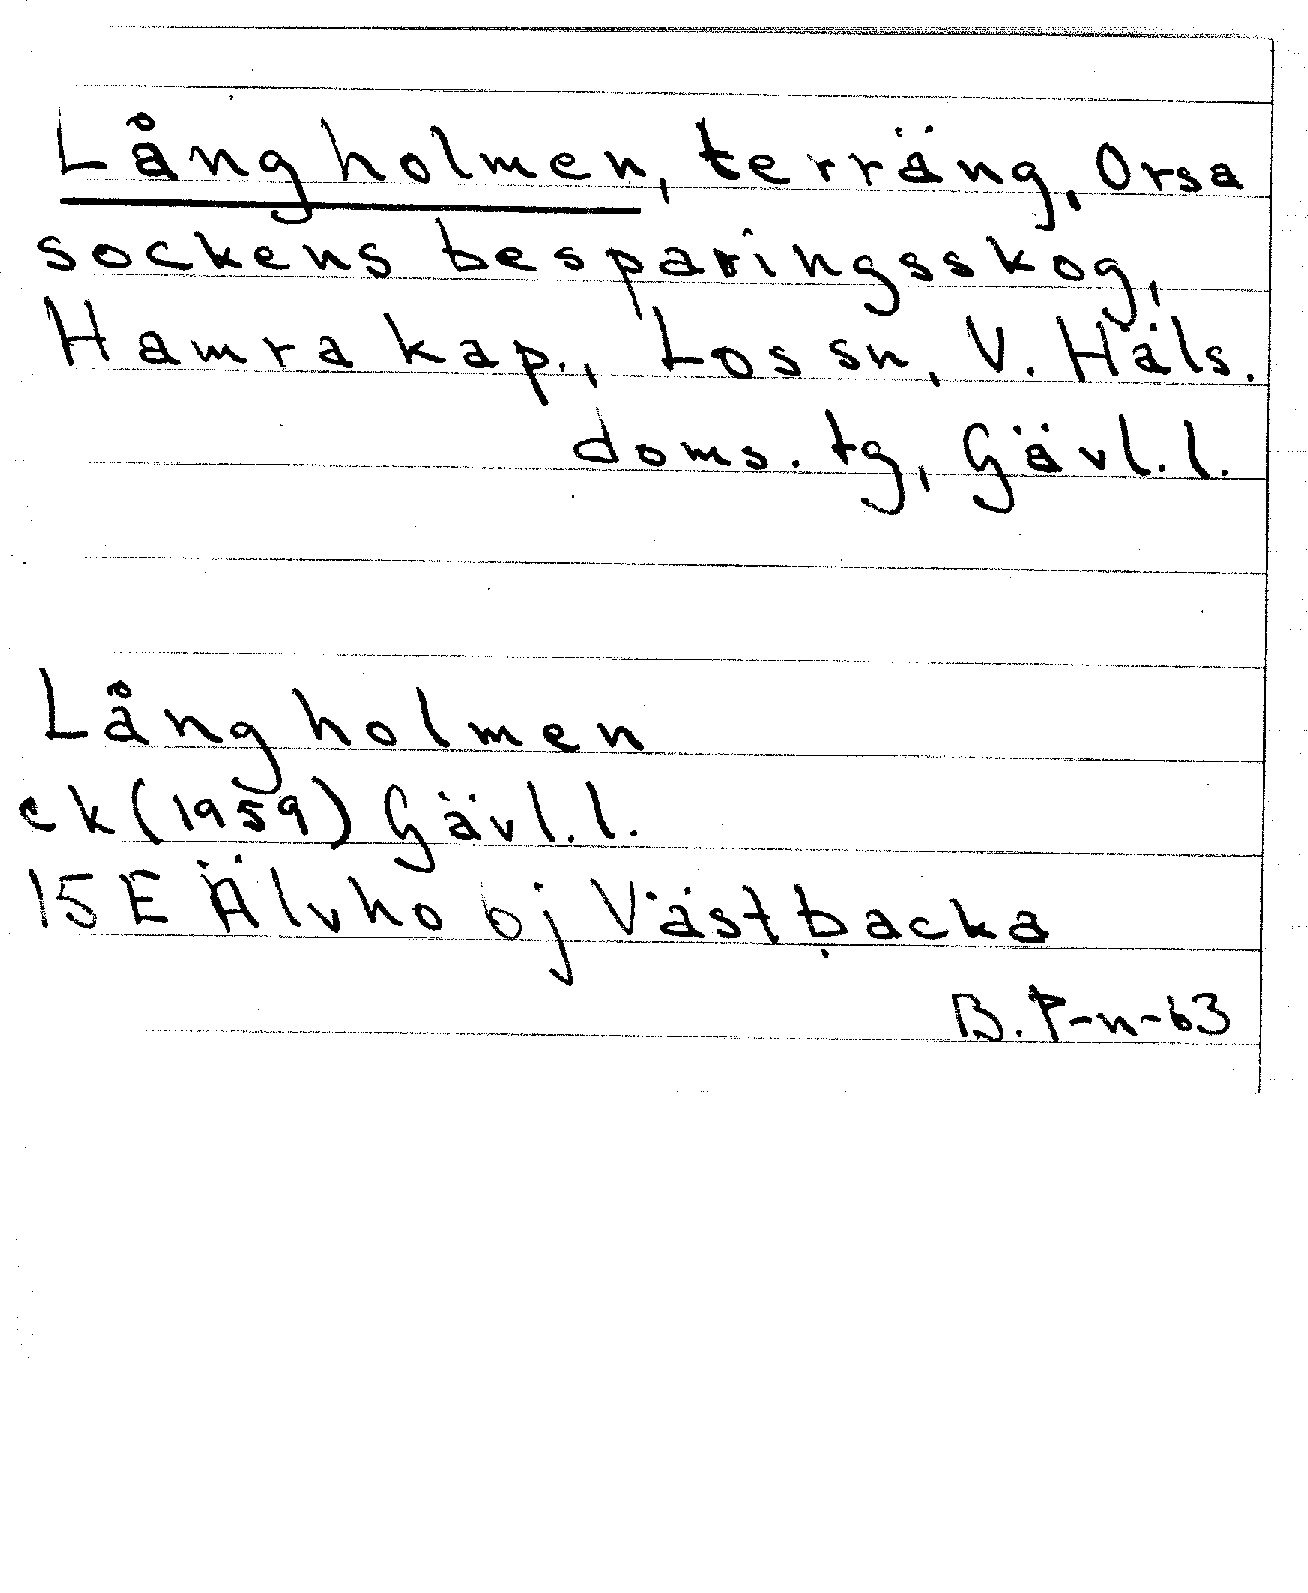 Långholmen, terräng, Orsa
sockens besparingsskog,
Hamra kap., Los sn, V. Häls.
doms. tg, Gävl. l.
Långholmen
ek (1959) Gävl. l.
15 E Älvho 6j Västbacka
B. P-n-63